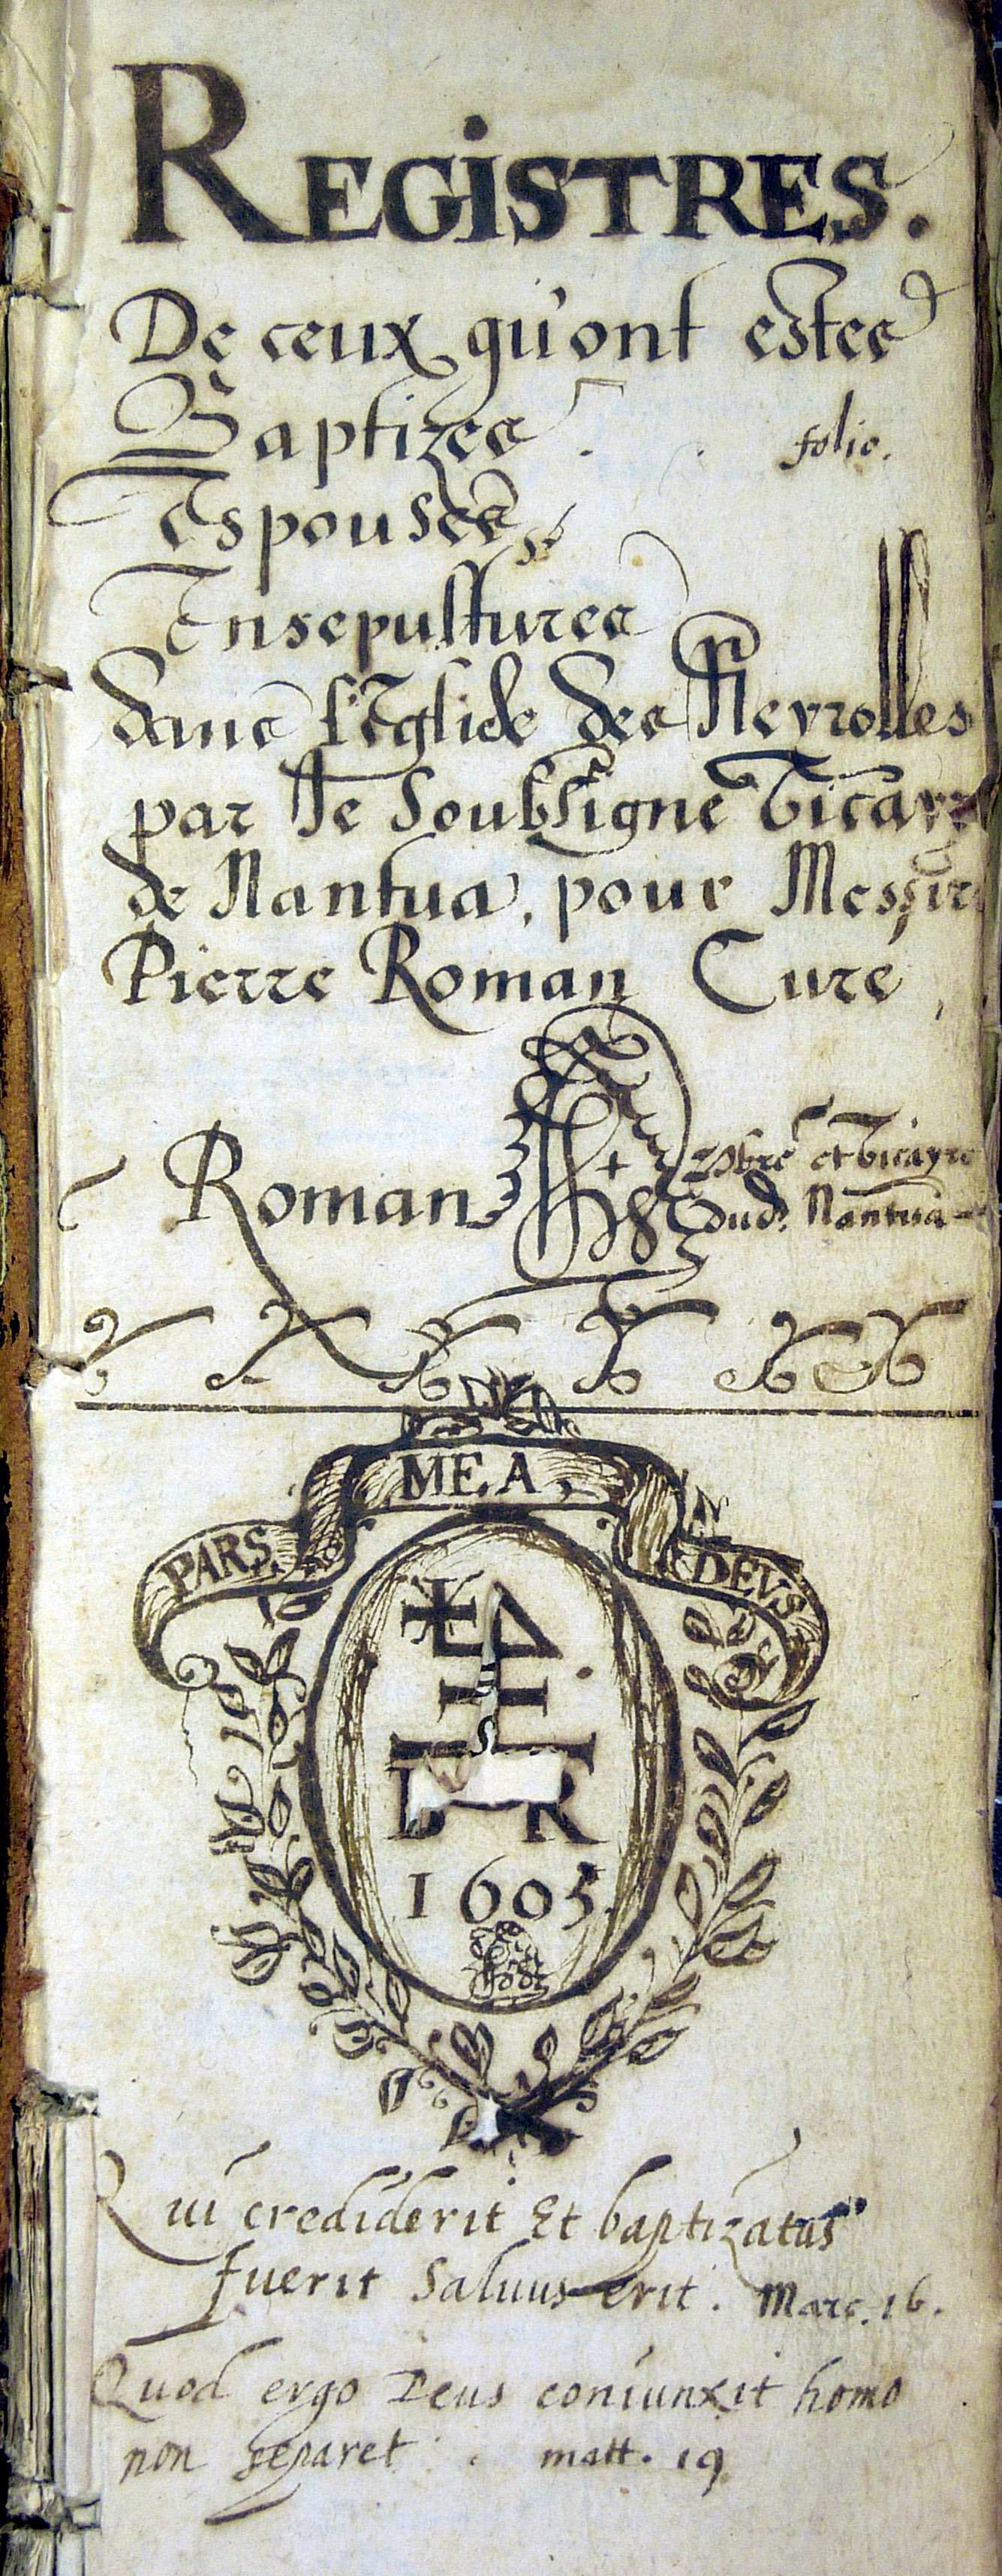 REGiSTRES.
De ceux qu'ont estes
Baptizes . . folio.
Espouses
Ensepultures
dans l'Eglide des Neyrolles
par Je Soubsigne Vicare
de Nantua, pour Messire
Pierre Roman Cure
Roman pbre et vicayre
dud. Nantua
PARS MEA, DEVS
R
1605.
Qui crediderit Et baptizatus
fuerit Saluus erit. Marc. 16.
Quod ergo Deus coniunxit homo
non separet . matt. 19